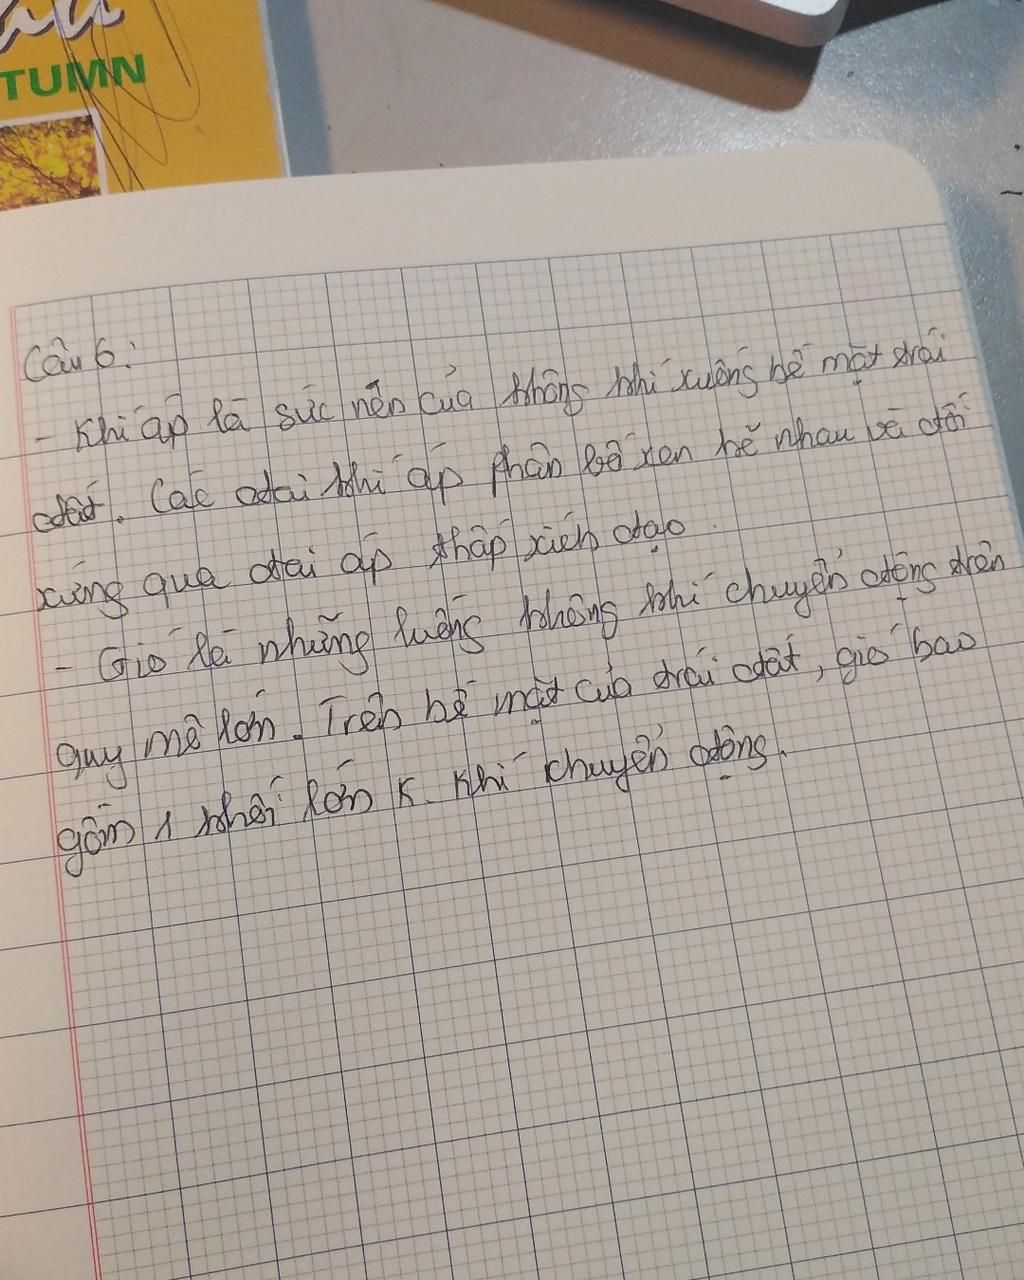 TUMN
Câu 6:
- Khí áp là sức nén của không khí xuống bề mặt trái
đất. Các đai khí áp phân bố xen kẽ nhau và đối
xứng qua đai áp thấp xích đạo.
- Gió là những luồng không khí chuyển động trên
quy mô lớn. Trên bề mặt của trái đất, gió bao
gồm 1 khối lớn k. khí chuyển động.